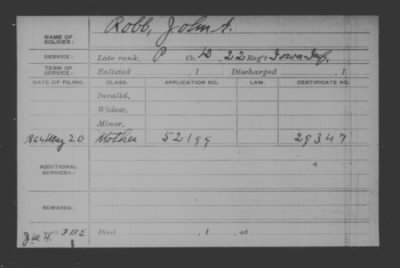 Robb, John A.
NAME OF SOLDIER:
SERVICE: Late rank, P Co. D, 22 Reg't Iowa Inf.
TERM OF SERVICE: Enlisted , 1 Discharged , 1
DATE OF FILING. CLASS. APPLICATION NO. LAW. CERTIFICATE NO.
Invalid,
Widow,
Minor,
1864 May 20 Mother 52199 29347
ADDITIONAL SERVICES:
REMARKS:
Died , 1 , at